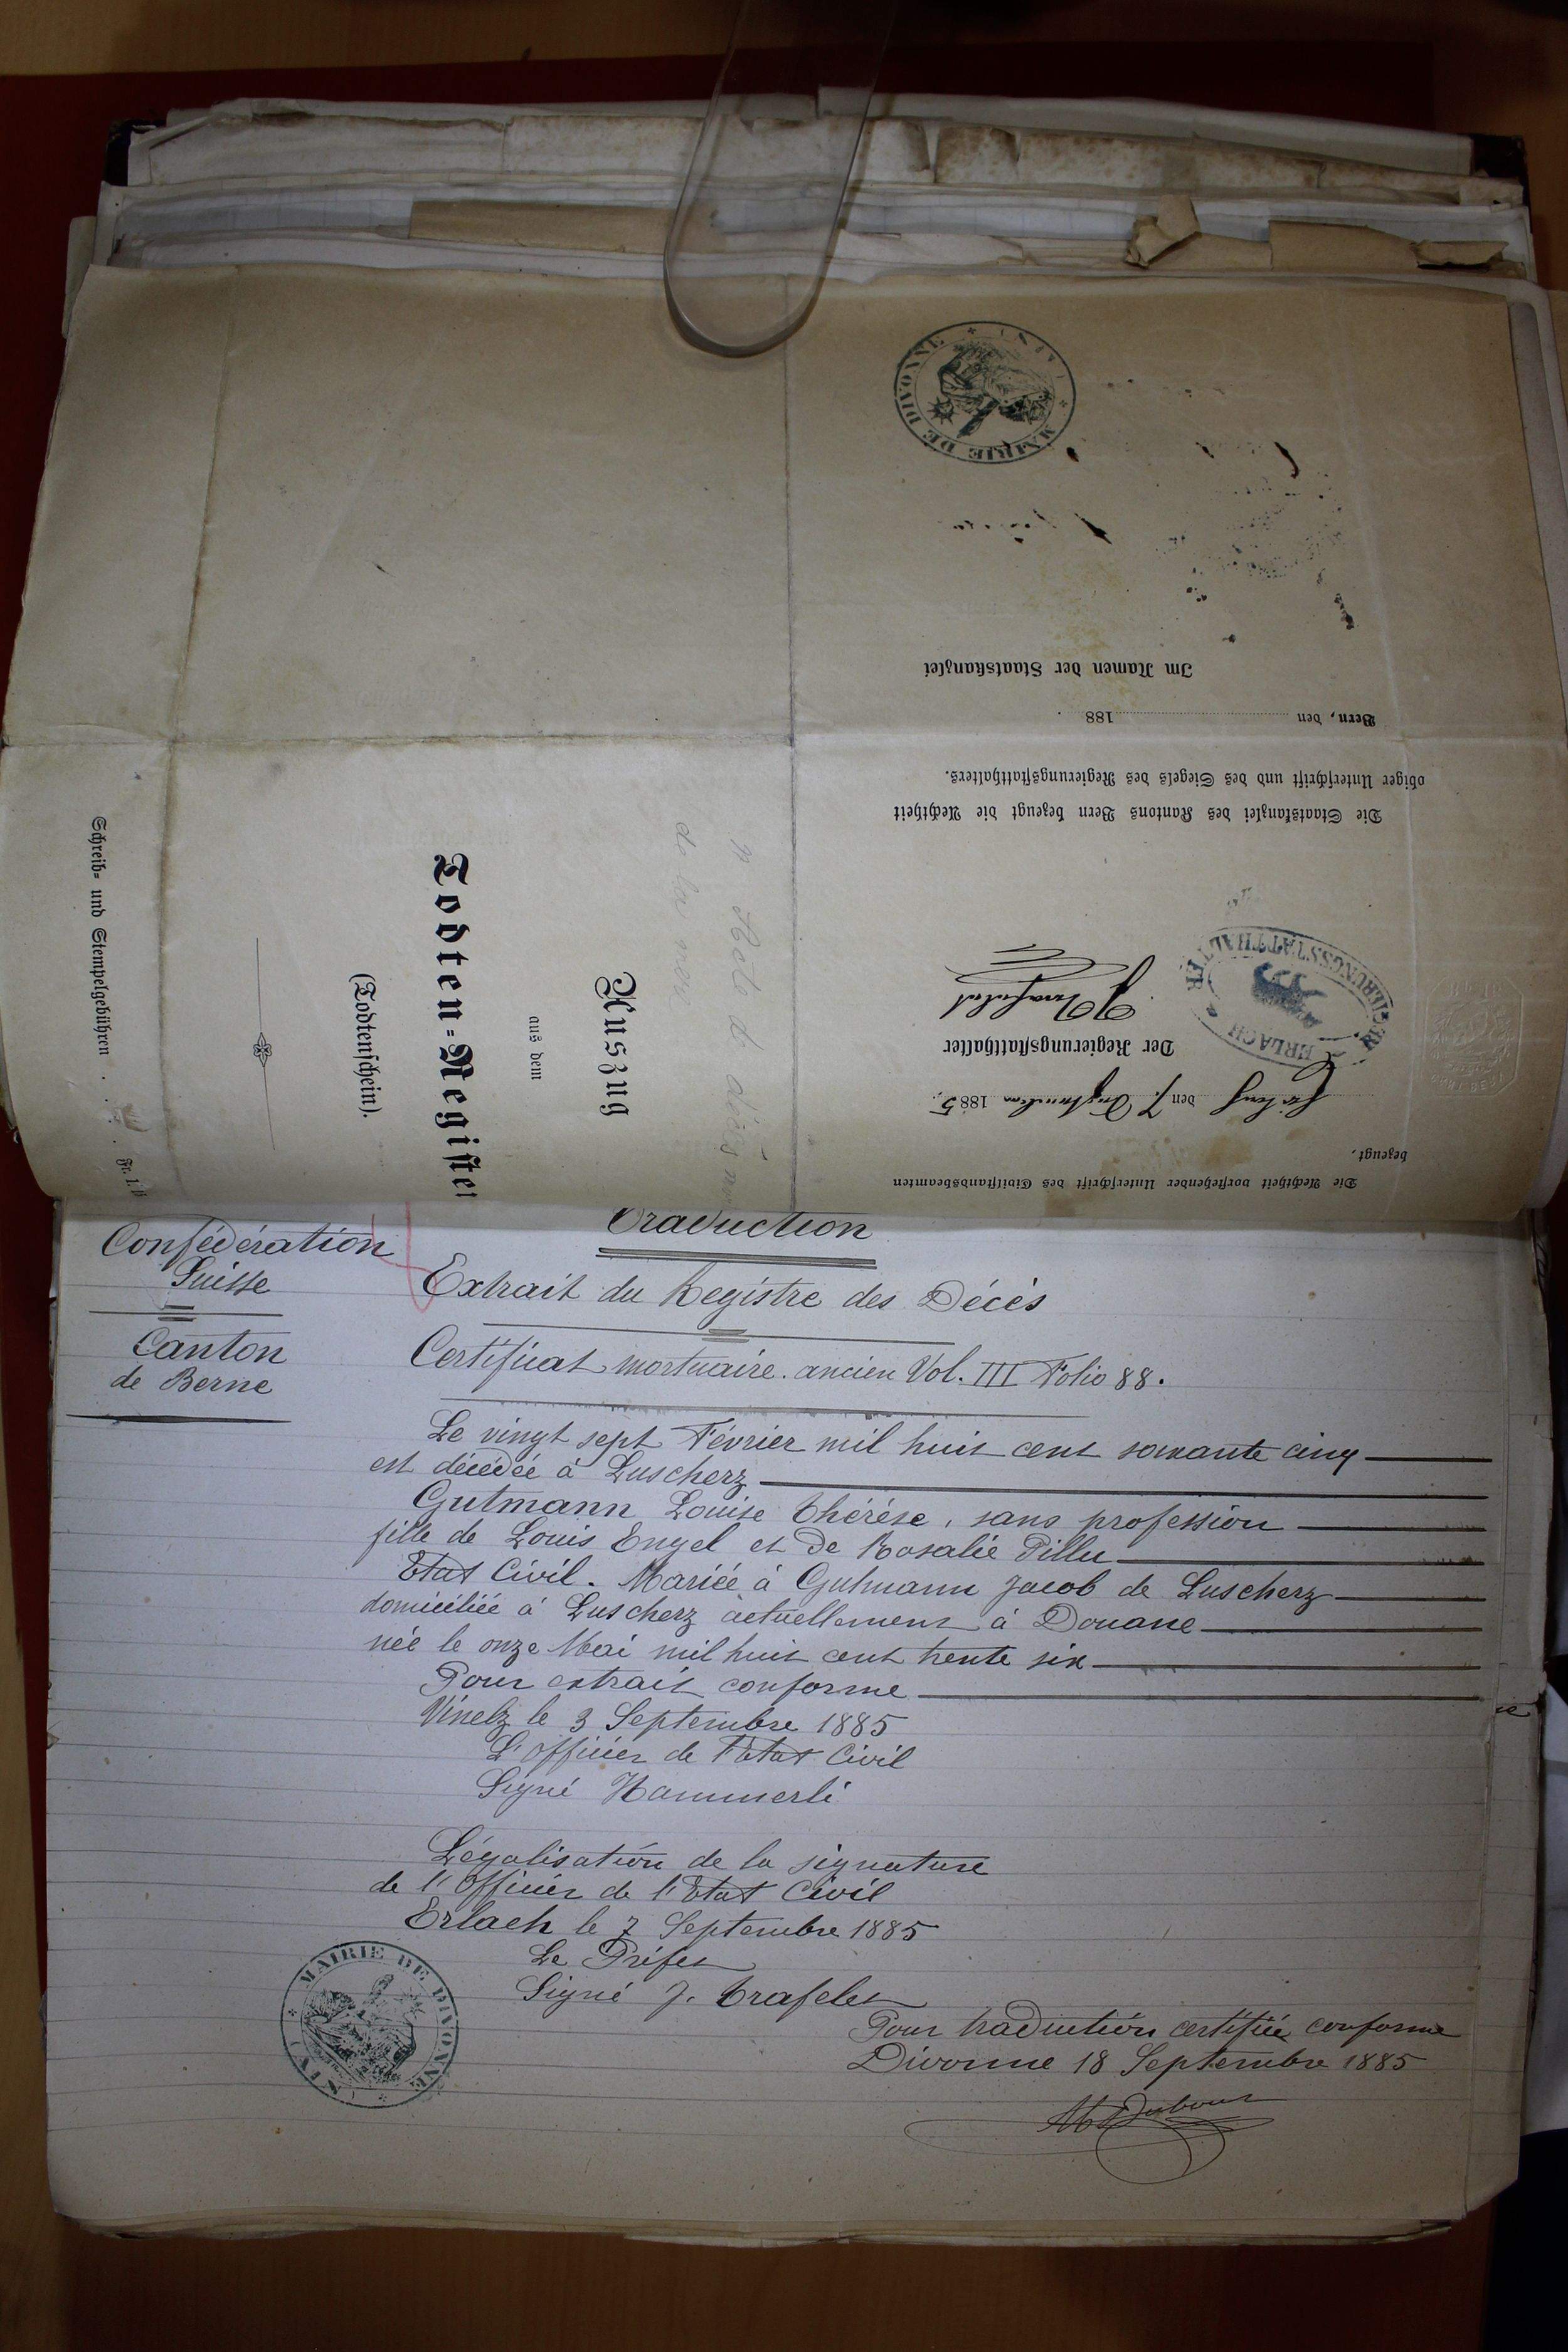 MAIRIE DE DIVONNE (AIN)
Im Namen der Staatskanzlei
Bern, den 188 .
obiger Unterschrift und des Siegels des Regierungsstatthalters.
Die Staatskanzlei des Kantons Bern bezeugt die Aechtheit
Der Regierungsstatthalter
REGIERUNGSSTATTHALTER
ERLACH
den 7. 1885.
bezeugt,
Die Aechtheit vorstehender Unterschrift des Civilstandsbeamten
Auszug
aus dem
Todten-Register
(Todtenschein).
Schreib- und Stempelgebühren . . . Fr. 1.
de la mère
Traduction
Confédération
Suisse
Canton
de Berne
Extrait du Registre des Décès
Certificat mortuaire. ancien Vol. III Folio 88.
Le vingt sept Février mil huit cent soixante cinq
est décédée à Luscherz
Gutmann Louise Thérèse, sans profession
fille de Louis Engel et de Rosalie Pillu
Etat Civil. Mariée à Gutmann Jacob de Luscherz
domiciliée à Luscherz actuellement à Douane
née le onze Mai mil huit cent trente six
Pour extrait conforme
Vinelz le 3 Septembre 1885
L'officier de l'Etat Civil
Signé Hammerli
Légalisation de la signature
de l'Officier de l'Etat Civil
Erlach le 7 Septembre 1885
Le Préfet
Signé J. Trafelet
MAIRIE DE DIVONNE (AIN)
Pour traduction certifiée conforme
Divonne 18 Septembre 1885